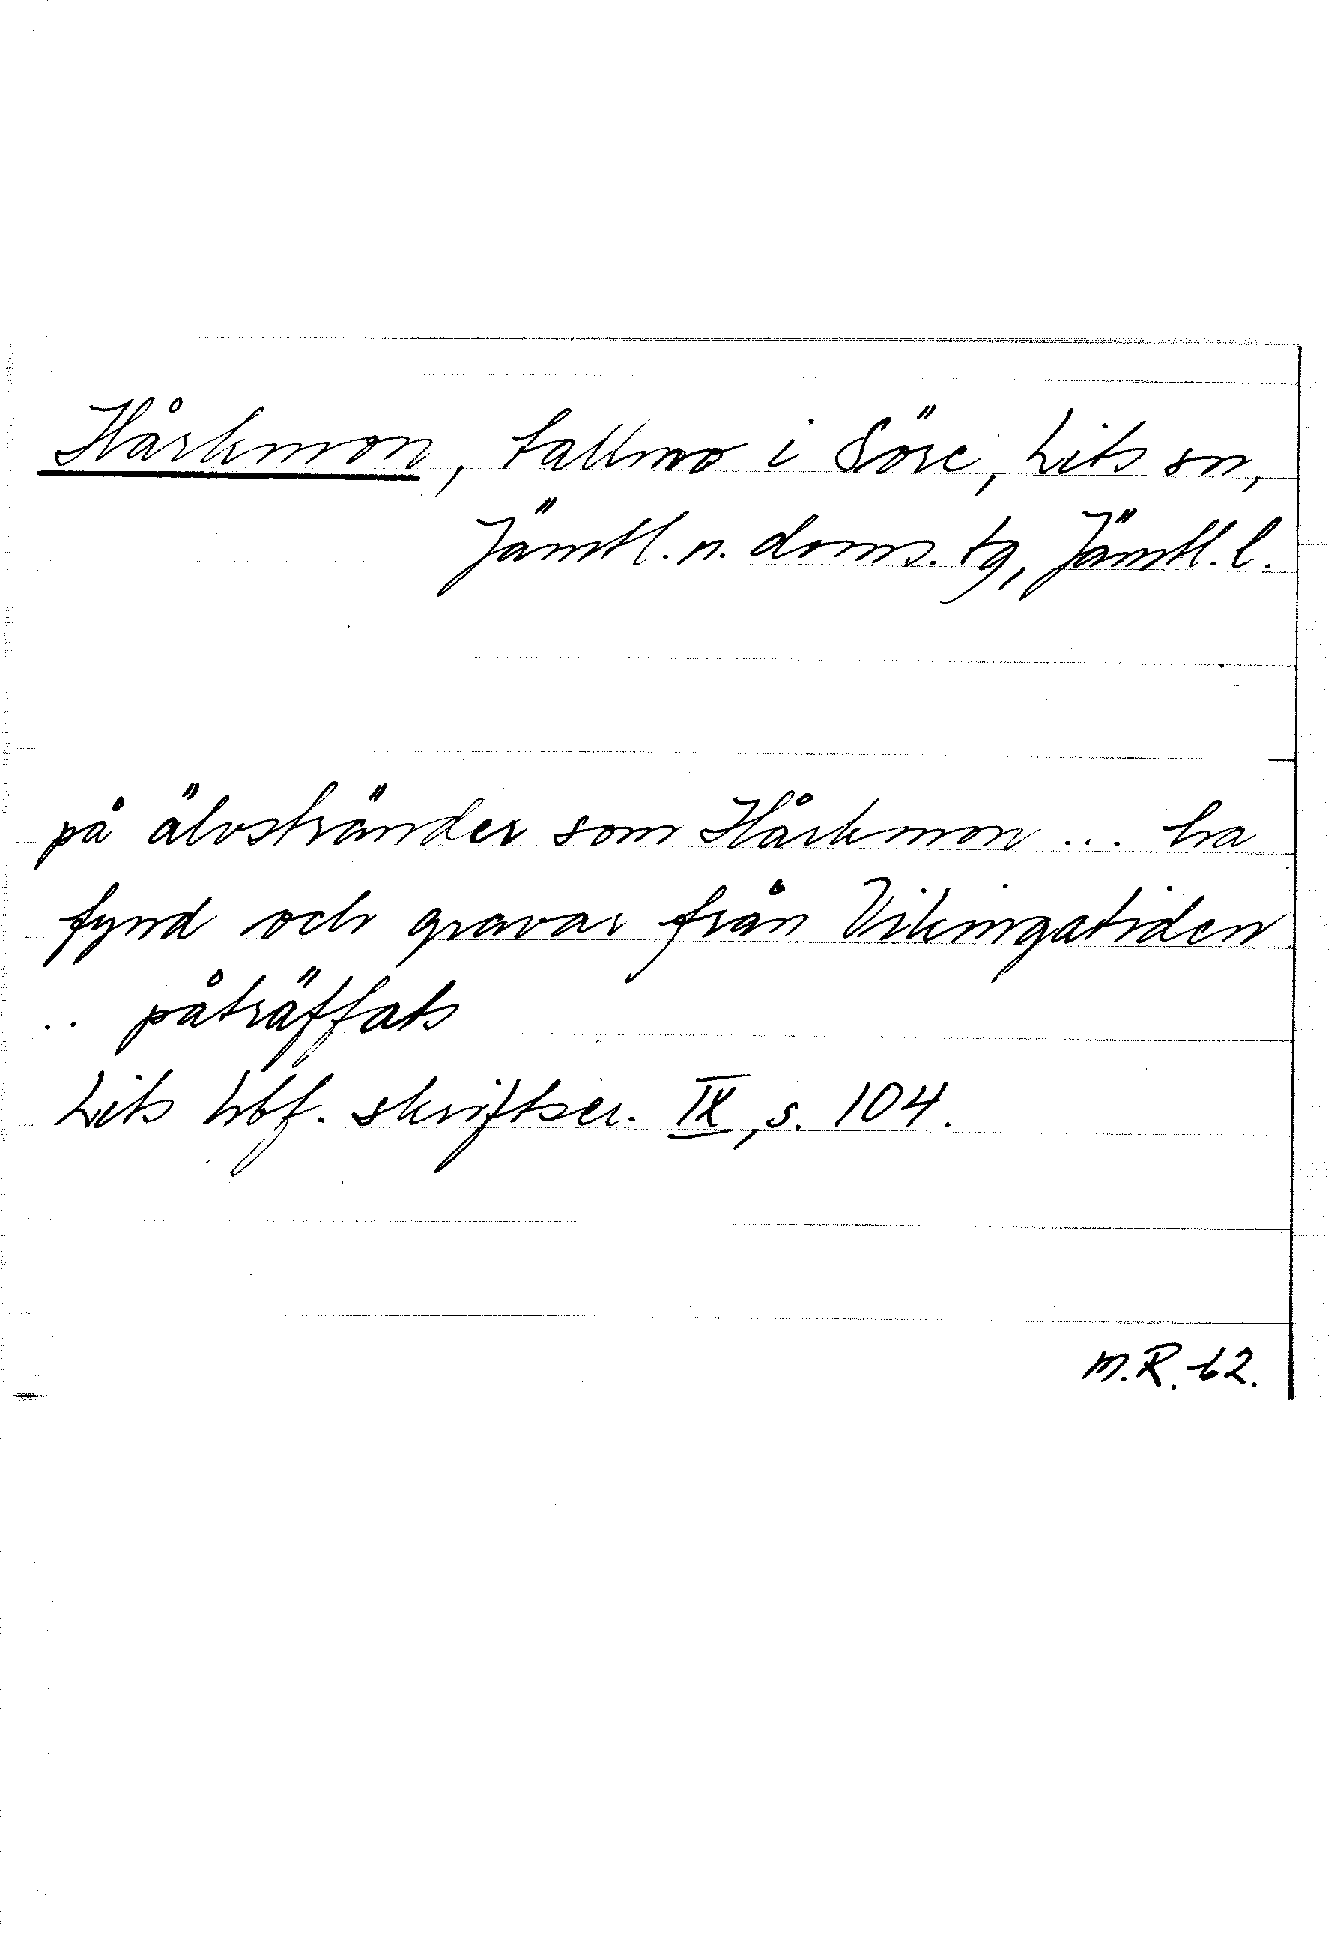 Hårkmon, tallmo i Söre, Lits sn,
Jämtl. n. doms. tg, Jämtl. l.
på älvstränder som Hårkmon ... ha
fynd och gravar från Vikingatiden
.. påträffats
Lits hbf. skriftser. IX, s. 104.
M.R. 62.